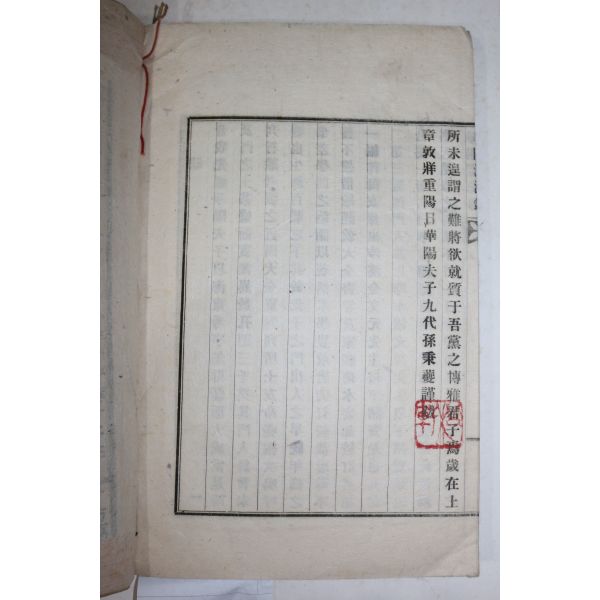 所未遑謂之難將欲就質于吾黨之博雅君子焉歲在上
章敦牂重陽日華陽夫子九代孫秉夔謹